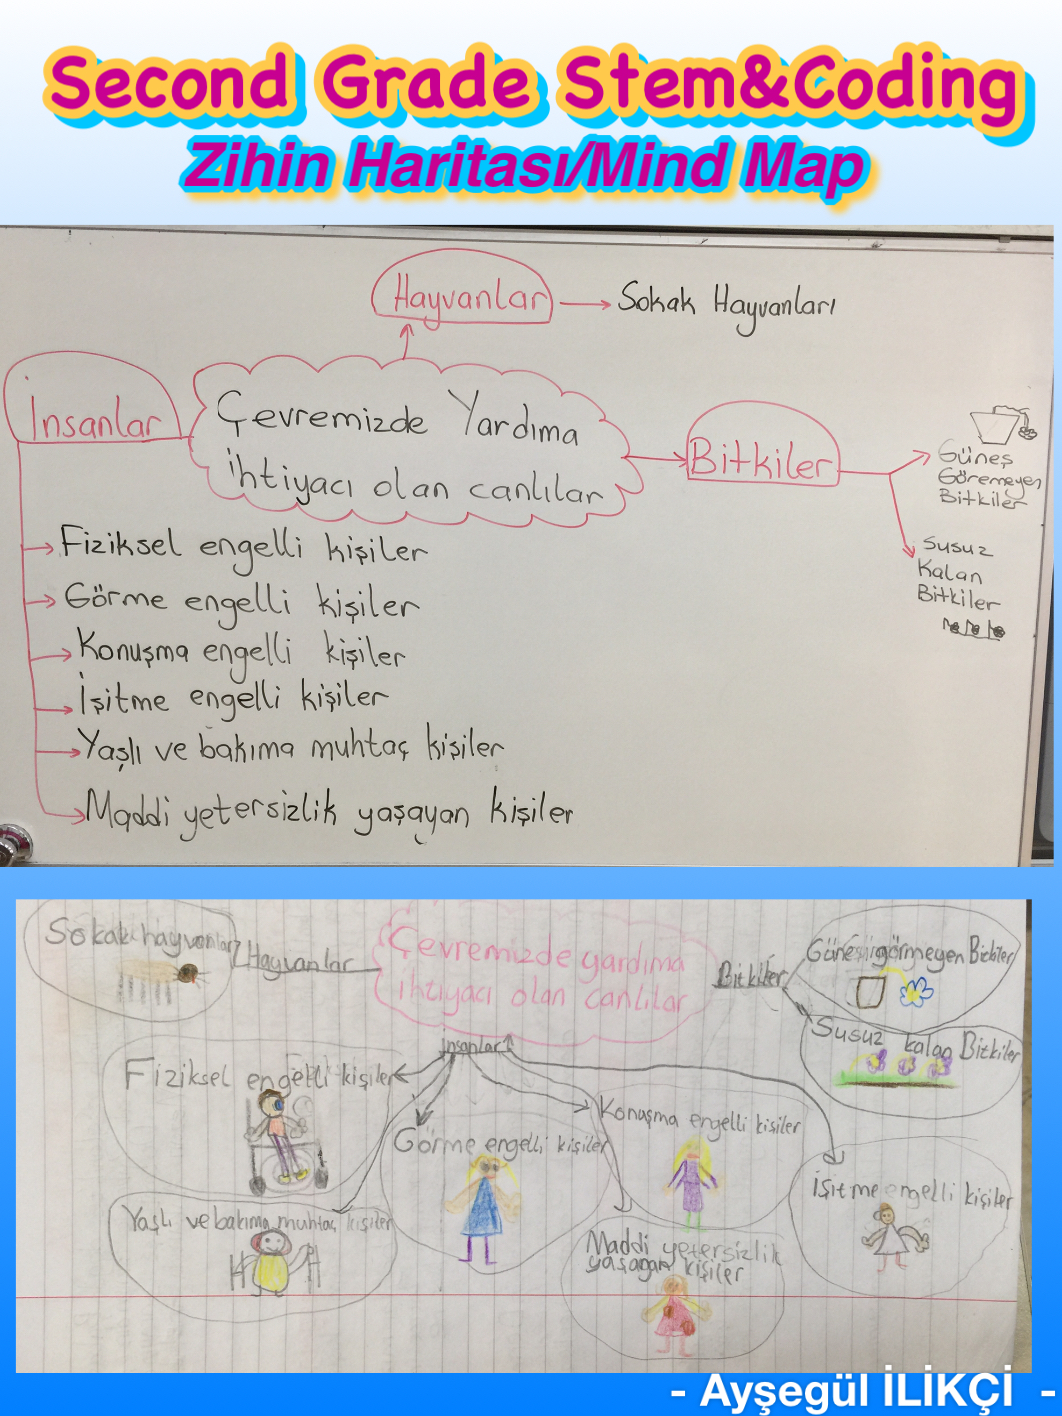 Second Grade Stem&Coding
Zihin Haritası/Mind Map
Hayvanlar
Sokak Hayvanları
İnsanlar
Çevremizde Yardıma
ihtiyacı olan canlılar
Bitkiler
Güneş
Göremeyen
Bitkiler
Susuz
Kalan
Bitkiler
Fiziksel engelli kişiler
Görme engelli kişiler
Konuşma engelli kişiler
İşitme engelli kişiler
Yaşlı ve bakıma muhtaç kişiler
Maddi yetersizlik yaşayan kişiler
Sokak hayvanları
Hayvanlar
Çevremizde yardıma
ihtiyacı olan canlılar
Bitkiler
Güneş görmeyen Bitkiler
Susuz kalan Bitkiler
insanlar
Fiziksel engelli kişiler
Görme engelli kişiler
Konuşma engelli kişiler
İşitme engelli kişiler
Yaşlı ve bakıma muhtaç kişiler
Maddi yetersizlik
yaşayan kişiler
- Ayşegül İLİKÇİ -